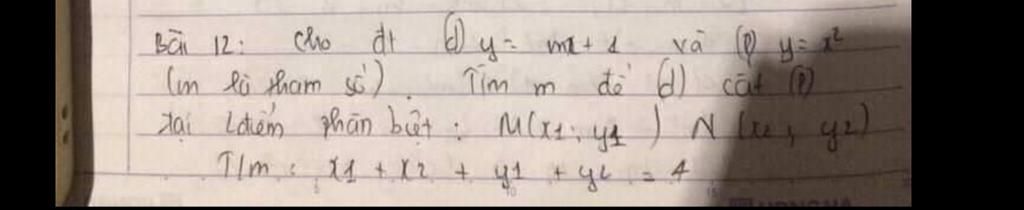 Bài 12: Cho đt (d) y = mx + 1 và (P) y = x²
(m là tham số). Tìm m để (d) cắt (P)
tại 2 điểm phân biệt: M(x1; y1) N(x2; y2)
T/m: x1 + x2 + y1 + y2 = 4